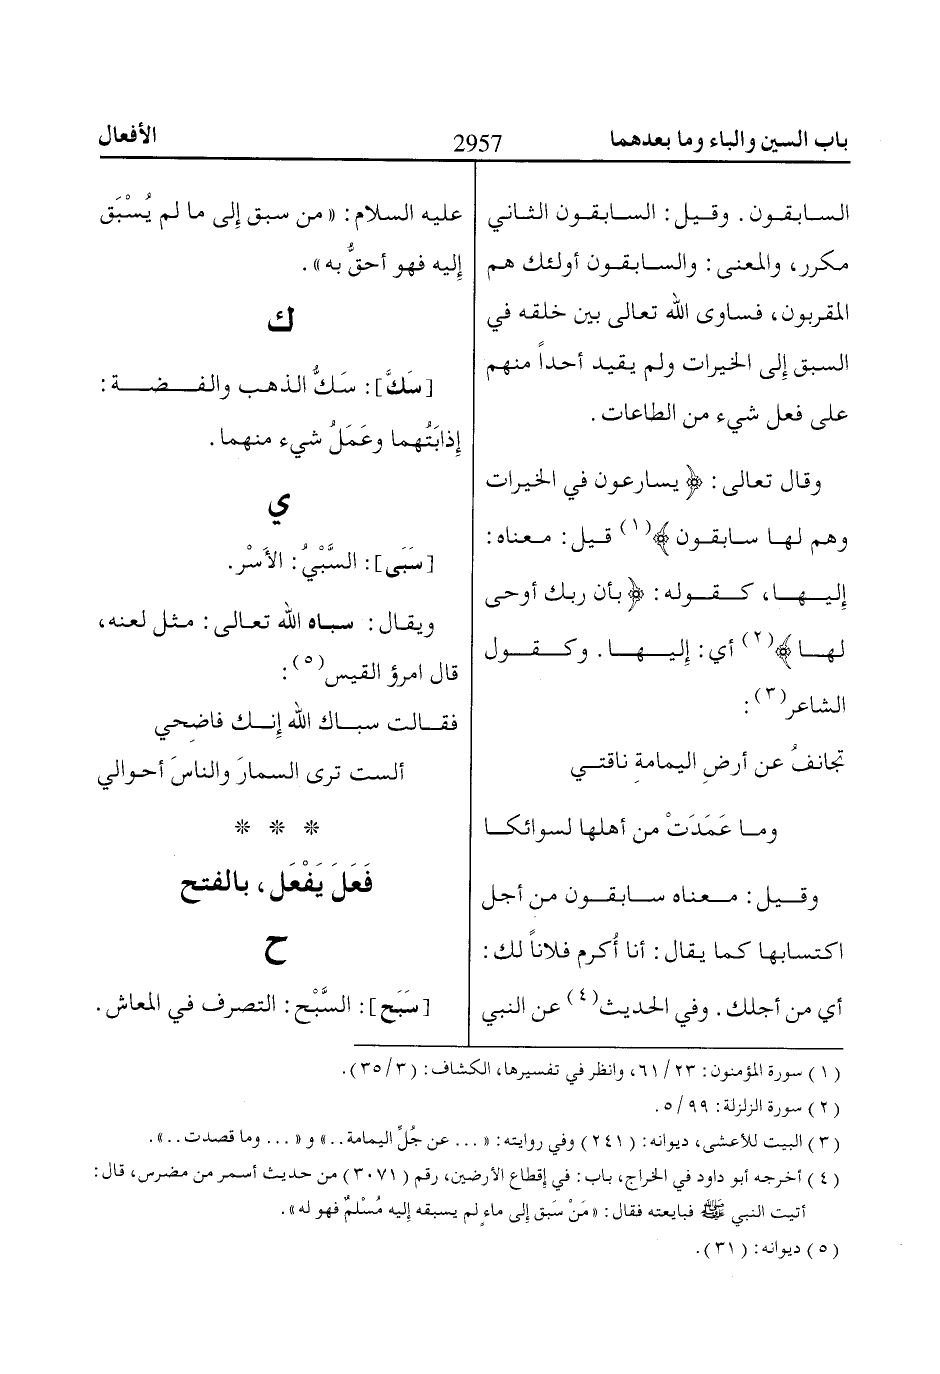 باب السين والباء وما بعدهما 2957 الأفعال
السابقون. وقيل: السابقون الثاني
مكرر، والمعنى: والسابقون أولئك هم
المقربون، فساوى الله تعالى بين خلقه في
السبق إلى الخيرات ولم يقيد أحداً منهم
على فعل شيء من الطاعات.
وقال تعالى: ﴿يسارعون في الخيرات
وهم لها سابقون﴾(١) قيل: معناه:
إليها، كقوله: ﴿بأن ربك أوحى
لها﴾(٢) أي: إليها. وكقول
الشاعر(٣):
تجانفُ عن أرضِ اليمامةِ ناقتي
وما عَمَدَتْ من أهلها لسوائكا
وقيل: معناه سابقون من أجل
اكتسابها كما يقال: أنا أُكرم فلاناً لك:
أي من أجلك. وفي الحديث(٤) عن النبي
عليه السلام: «من سبق إلى ما لم يُسْبَق
إليه فهو أحقُّ به».
ك
[سَبَكَ]: سَبْكُ الذهب والفضة:
إذابَتُهما وعَمَلُ شيء منهما.
ي
[سَبَى]: السَّبْيُ: الأَسْر.
ويقال: سباه الله تعالى: مثل لعنه،
قال امرؤ القيس(٥):
فقالت سباك الله إنك فاضحي
ألست ترى السمارَ والناسَ أحوالي
* * *
فَعَلَ يَفْعَل، بالفتح
ح
[سَبَح]: السَّبْح: التصرف في المعاش.
(١) سورة المؤمنون: ٢٣/ ٦١، وانظر في تفسيرها، الكشاف: (٣/ ٣٥).
(٢) سورة الزلزلة: ٩٩/ ٥.
(٣) البيت للأعشى، ديوانه: (٢٤١) وفي روايته: «... عن جُلِّ اليمامة..» و«... وما قصدت..».
(٤) أخرجه أبو داود في الخراج، باب: في إقطاع الأرضين، رقم (٣٠٧١) من حديث أسمر من مضرس، قال:
أتيت النبي ﷺ فبايعته فقال: «مَنْ سَبق إلى ماءٍ لم يسبقه إليه مُسْلمٌ فهو له».
(٥) ديوانه: (٣١).